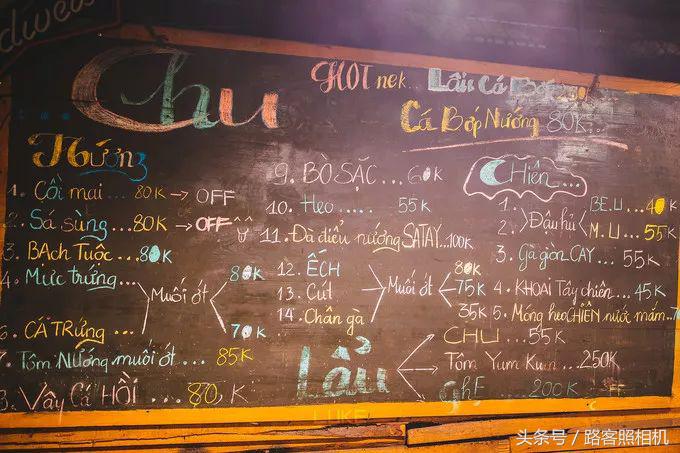 dweis
Chu
HOT nek.. Lẩu Cá Bớp
Cá Bớp Nướng 80K..
Nướng
1. Cồi mai... 80K → OFF
2. Sá sùng... 80K → OFF
3. BẠch Tuộc... 80K
4. Mực trứng... Muối ớt 80K
70K
6. CÁ TRứng...
7. Tôm Nướng muối ớt... 85K
8. Vây Cá HỒI ... 80K
9. BÒ SẶC... 60K
10. Heo..... 55K
11. Đà điểu nướng SATAY...100K
12. ẾCH 80K
13. Cút Muối ớt 75K
14. Chân gà 35K
Chiên...
1. Đậu hủ B.E.U... 40K
2. M.U... 55K
3. Gà giòn CAY... 55K
4. KHOAI Tây chiên... 45K
5. Móng heo CHIÊN nước mắm..
Lẩu
CHU... 55K
Tôm Yum Kum... 250K
GhE ... 200K
LUKE
头条号 / 路客照相机